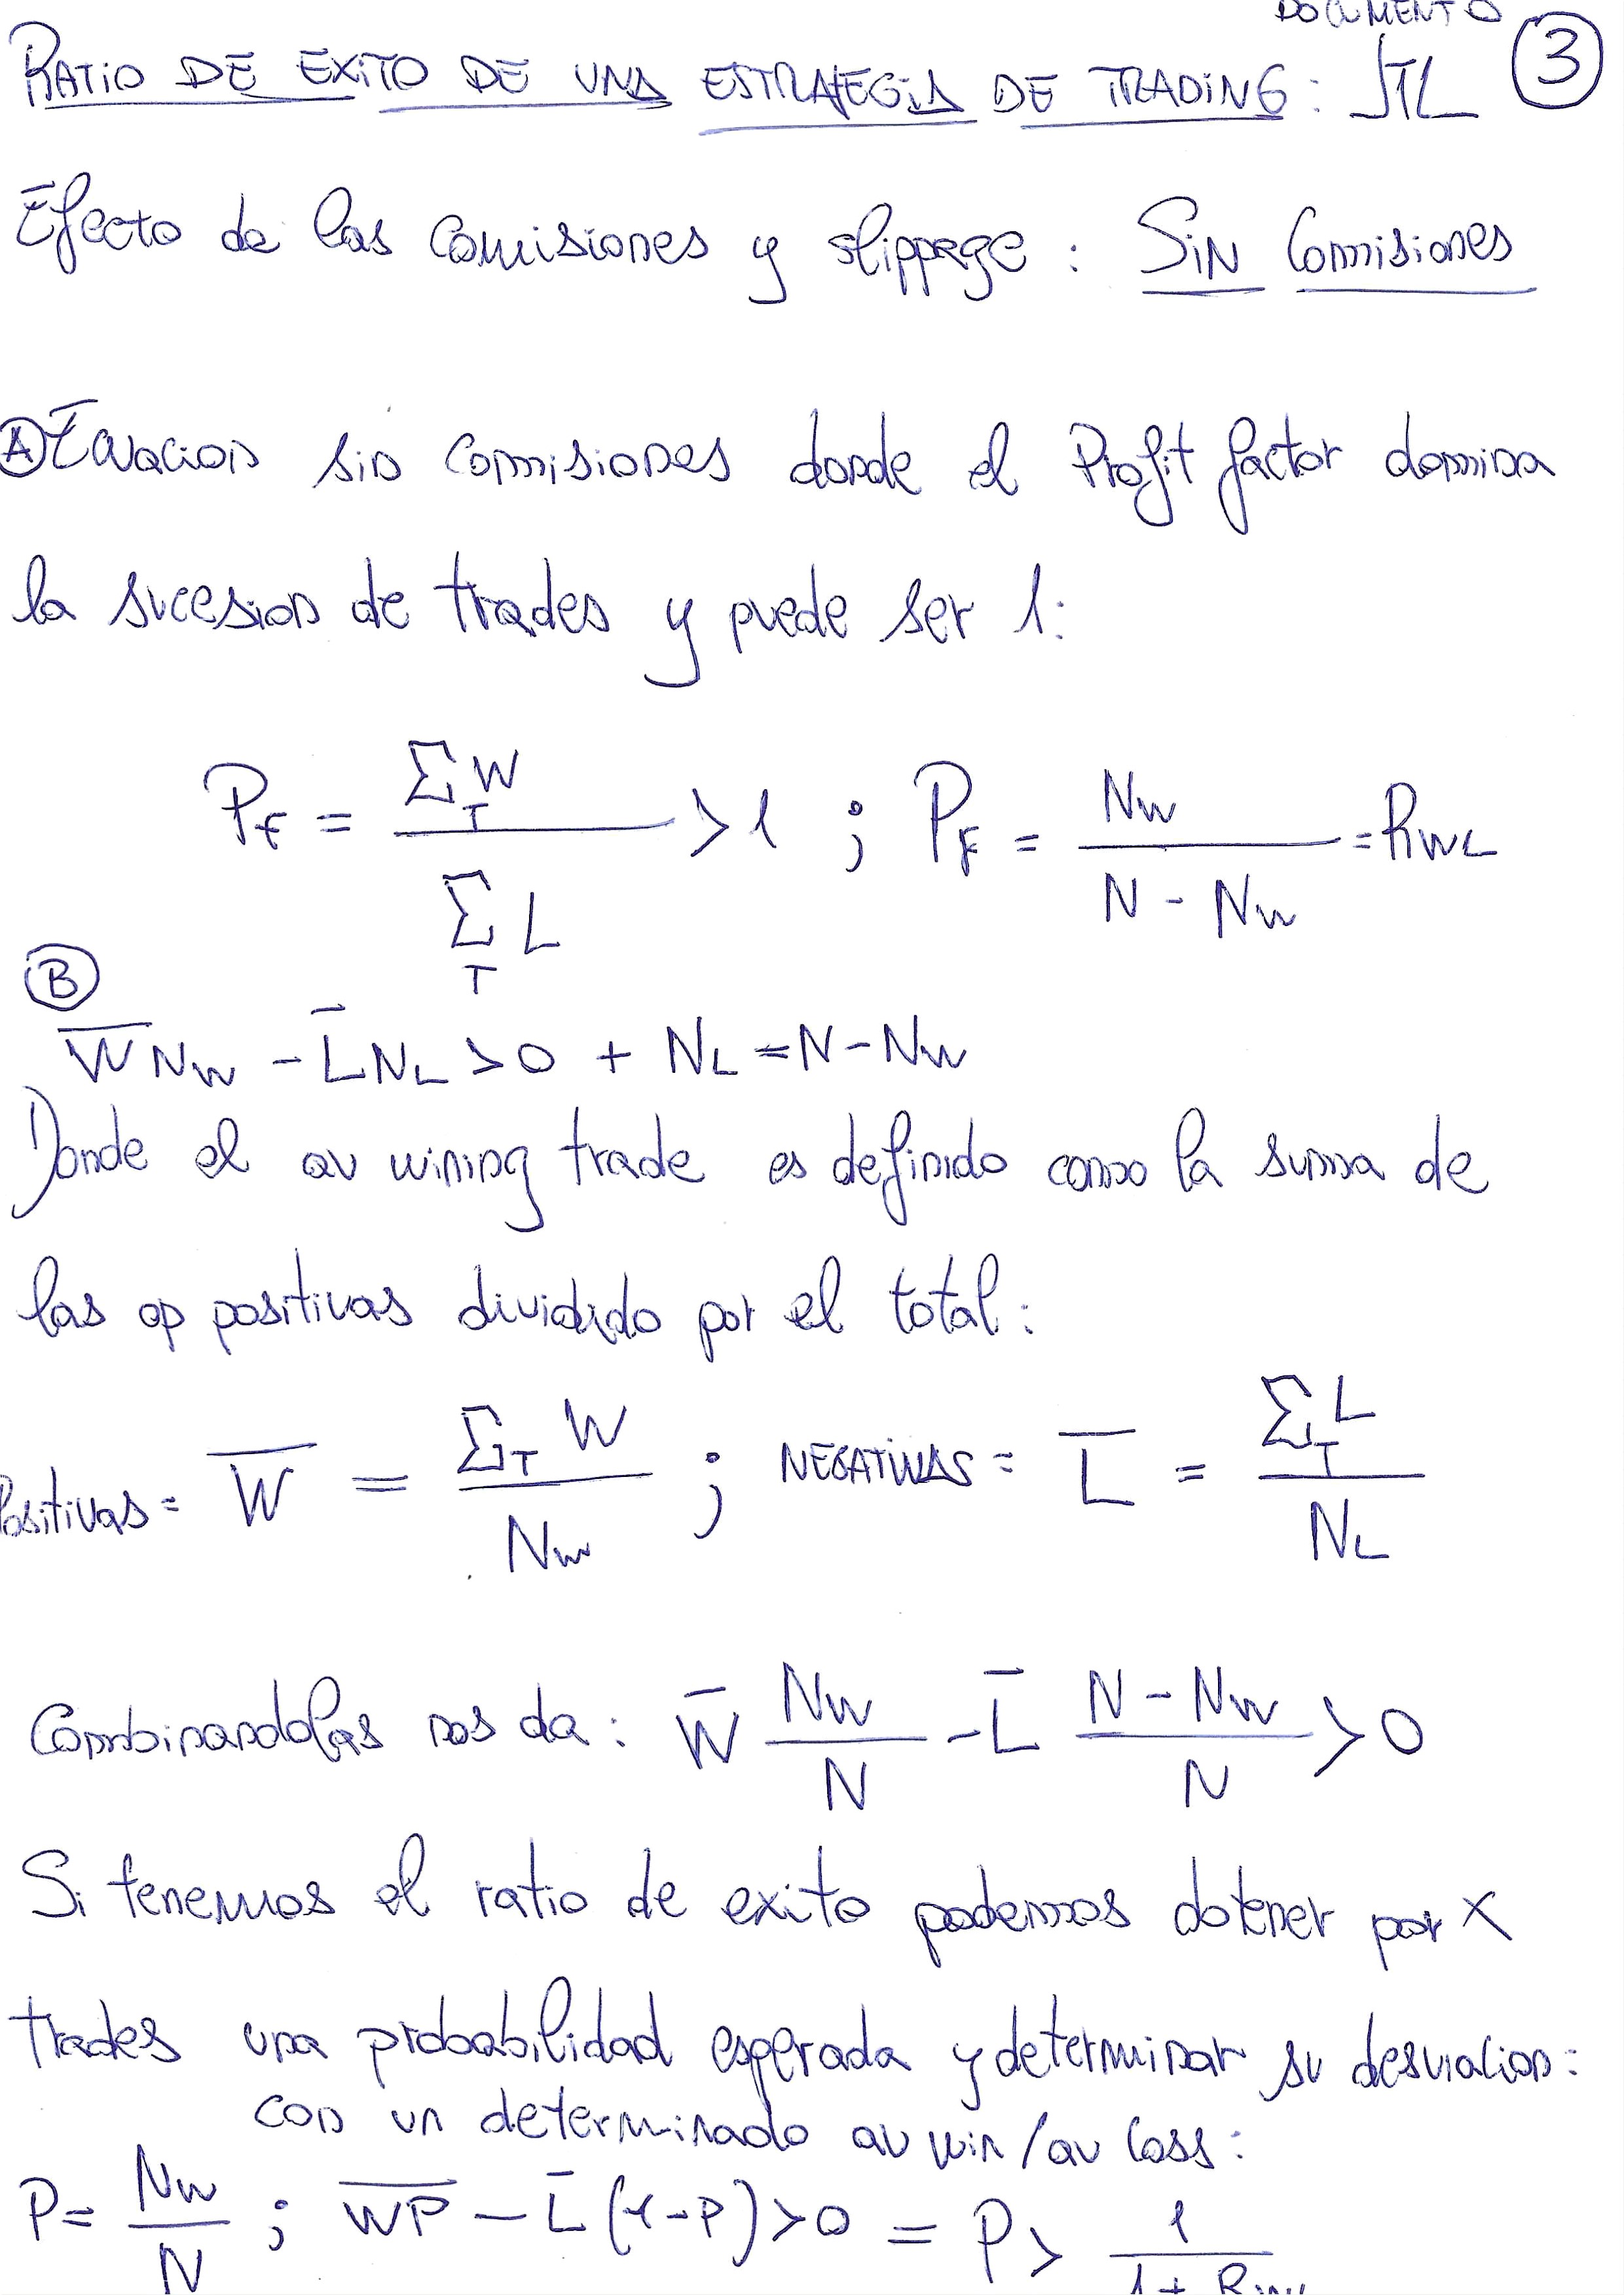 DOCUMENTO
RATIO DE EXITO DE UNA ESTRATEGIA DE TRADING: STL 3
Efecto de las comisiones y slippage: SIN Comisiones
A Ecuacion sin comisiones donde el Profit factor domina
la sucesion de trades y puede ser 1:
P_F = Σ_T W / Σ_T L > 1 ; P_F = N_W / N - N_W = R_WL
B
W̄ N_W - L̄ N_L > 0 + N_L = N - N_W
Donde el av wining trade es definido como la suma de
las op positivas dividido por el total:
Positivas = W̄ = Σ_T W / N_W ; NEGATIVAS = L̄ = Σ_T L / N_L
Combinandolas nos da: W̄ N_W / N - L̄ N - N_W / N > 0
Si tenemos el ratio de exito podemos obtener por X
trades una probabilidad esperada y determinar su desviacion:
con un determinado av win/av loss:
P = N_W / N ; W̄P̄ - L̄ (1-P) > 0 = P > 1 / 1+